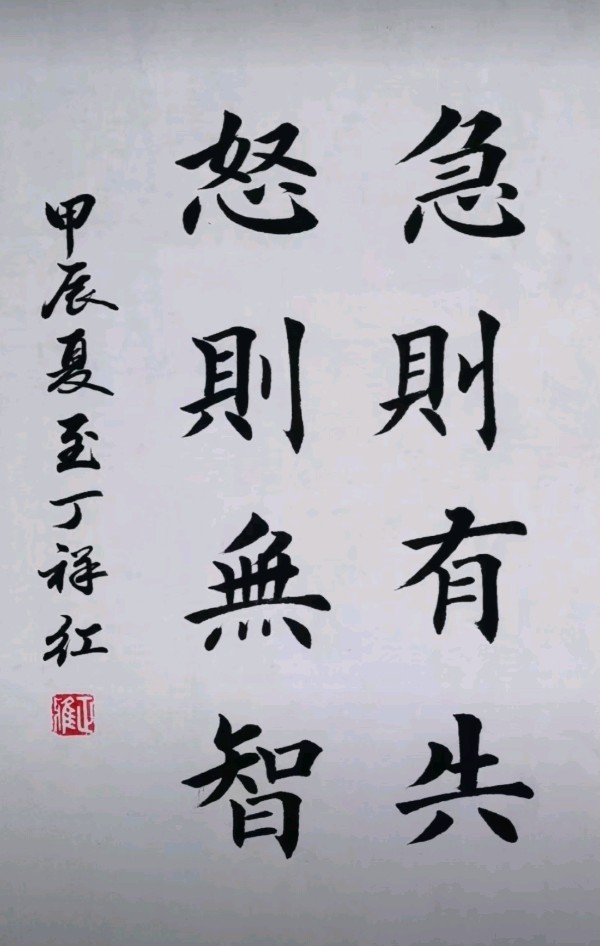 急則有失
怒則無智
甲辰夏至丁祥红